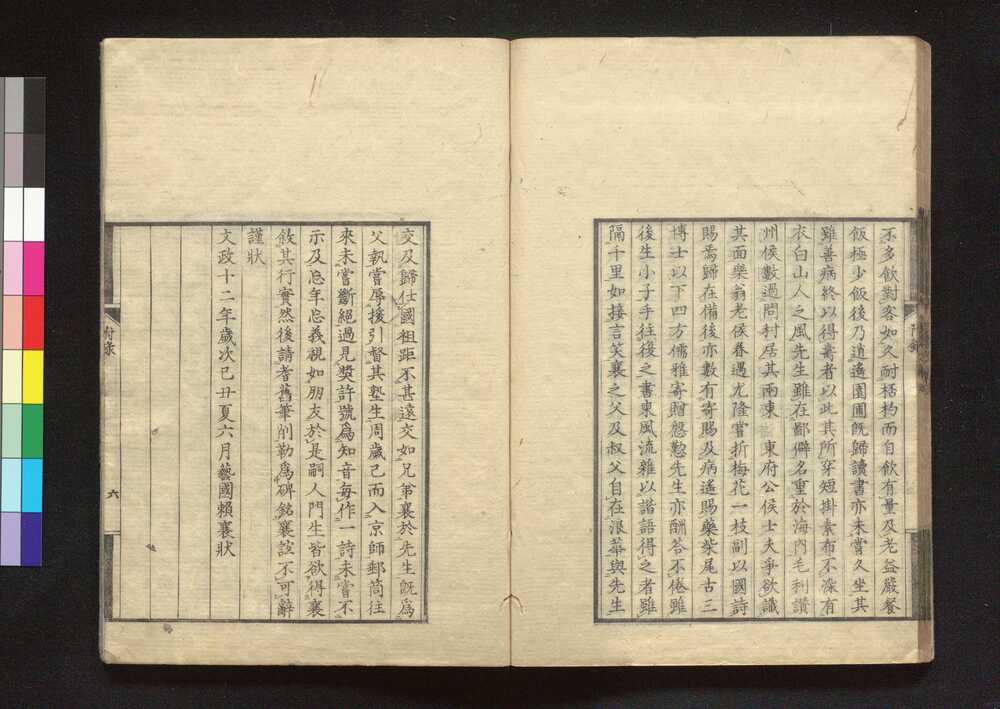 不多飲對客如久耐栝杓而自飲有量及老益嚴餐
飯極少飯後乃逍遙園圃既歸讀書亦未嘗久坐其
雖善病終以得壽者以此其所穿短掛素布不深有
衣白山人之風先生雖在鄙僻名重於海內毛利讚
州侯數過問村居其兩東 東府公侯士夫爭欲識
其面樂翁老侯眷遇尤隆嘗折梅花一枝副以國詩
賜焉歸在備後亦數有寄賜及病遙賜藥柴尾古三
博士以下四方儒雅寄贈慇懃先生亦酬答不倦雖
後生小子手往復之書東風流雜以諧語得之者雖
隔千里如接言笑襄之父及叔父自在浪華與先生
交及歸仕國祖距不甚遠交如兄弟襄於先生既為
父執嘗辱援引督其塾生周歲已而入京師郵筒往
來未嘗斷絕過見獎許號為知音每作一詩未嘗不
示及忘年忘義視如朋友於是嗣人門生皆欲得襄
敘其行實然後請耆舊筆削勒為碑銘襄誼不可辭
謹狀
文政十二年歲次己丑夏六月藝國賴襄狀
附錄
六